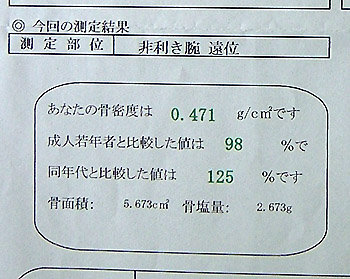 ◎ 今回の測定結果
測定部位 非利き腕 遠位
あなたの骨密度は 0.471 g/c㎡です
成人若年者と比較した値は 98 %で
同年代と比較した値は 125 %です
骨面積: 5.673c㎡ 骨塩量: 2.673g